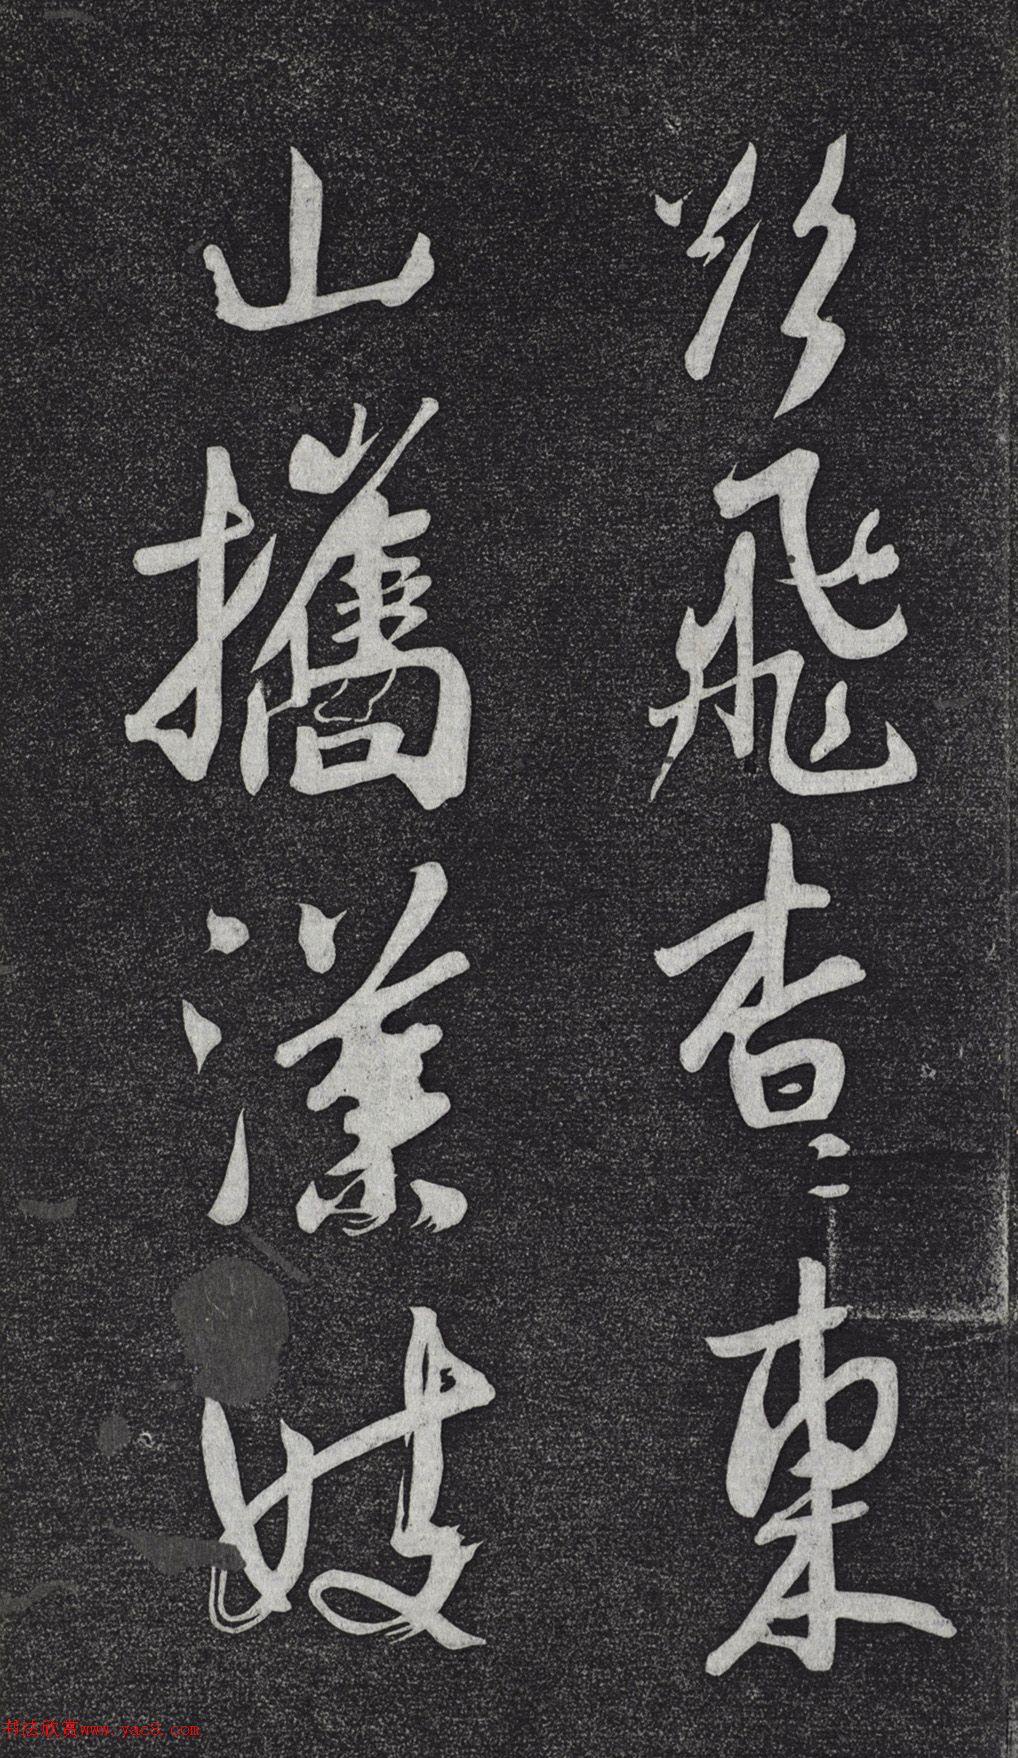 欲飛杳〻東
山攜漢妓
书法欣赏www.yac8.com